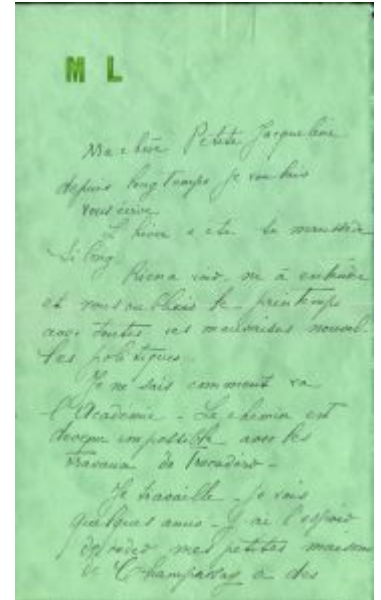 M L
Ma chère Petite Jacqueline
depuis longtemps je voulais
vous écrire
L'hiver a été si maussade
si long
Rien a voir, ni à entendre
et nous oublions le printemps
avec toutes ces mauvaises nouvel-
les politiques.
Je ne sais comment va
l'Académie - Le chemin est
devenu impossible avec les
travaux du Trocadéro -
Je travaille - je vois
quelques amis - J'ai l'espoir
de mes petites maisons
de Champrosay a des